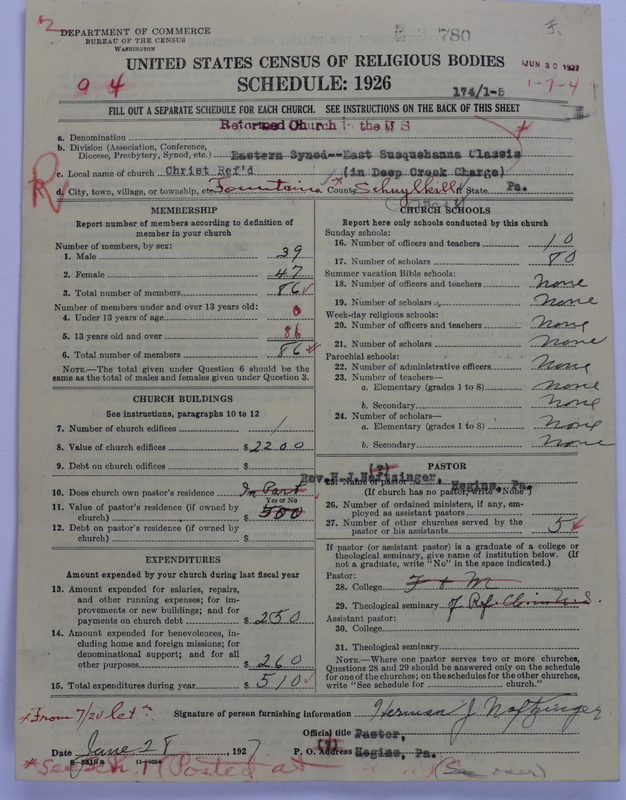 780
DEPARTMENT OF COMMERCE
BUREAU OF THE CENSUS
WASHINGTON
UNITED STATES CENSUS OF RELIGIOUS BODIES
JUN 30 1927
SCHEDULE: 1926
9 4
174/1-5
1-7-4
FILL OUT A SEPARATE SCHEDULE FOR EACH CHURCH. SEE INSTRUCTIONS ON THE BACK OF THIS SHEET
a. Denomination Reformed Church in the U S
b. Division (Association, Conference, Diocese, Presbytery, Synod, etc.) Eastern Synod--East Susquehanna Classis
c. Local name of church Christ Ref'd (in Deep Creek Charge)
d. City, town, village, or township, etc. Fountain County Schuylkill State Pa.
MEMBERSHIP
Report number of members according to definition of member in your church
Number of members, by sex:
1. Male 39
2. Female 47
3. Total number of members 86
Number of members under and over 13 years old:
4. Under 13 years of age 0
5. 13 years old and over 86
6. Total number of members 86
NOTE.—The total given under Question 6 should be the same as the total of males and females given under Question 3.
CHURCH BUILDINGS
See instructions, paragraphs 10 to 12
7. Number of church edifices 1
8. Value of church edifices $ 2200
9. Debt on church edifices $
10. Does church own pastor's residence In Part
Yes or No
11. Value of pastor's residence (if owned by church) $ 500
12. Debt on pastor's residence (if owned by church) $
EXPENDITURES
Amount expended by your church during last fiscal year
13. Amount expended for salaries, repairs, and other running expenses; for improvements or new buildings; and for payments on church debt $ 250
14. Amount expended for benevolences, including home and foreign missions; for denominational support; and for all other purposes $ 260
15. Total expenditures during year $ 510
CHURCH SCHOOLS
Report here only schools conducted by this church
Sunday schools:
16. Number of officers and teachers 10
17. Number of scholars 80
Summer vacation Bible schools:
18. Number of officers and teachers None
19. Number of scholars None
Week-day religious schools:
20. Number of officers and teachers None
21. Number of scholars None
Parochial schools:
22. Number of administrative officers None
23. Number of teachers—
a. Elementary (grades 1 to 8) None
b. Secondary None
24. Number of scholars—
a. Elementary (grades 1 to 8) None
b. Secondary None
PASTOR
25. Name of pastor Rev. H.J. Noftzinger, Hegins, Pa.
(If church has no pastor, write "None")
26. Number of ordained ministers, if any, employed as assistant pastors
27. Number of other churches served by the pastor or his assistants 5
If pastor (or assistant pastor) is a graduate of a college or theological seminary, give name of institution below. (If not a graduate, write "No" in the space indicated.)
Pastor:
28. College F & M
29. Theological seminary of Ref.
Assistant pastor:
30. College
31. Theological seminary
NOTE.—Where one pastor serves two or more churches, Questions 28 and 29 should be answered only on the schedule for one of the churches; on the schedules for the other churches, write "See schedule for church."
*From 7/20 let
Signature of person furnishing information Herman J. Noftzinger
Official title Pastor,
Date June 28 1927
P. O. Address Hegins, Pa.
8-5518 a
*See sch. 1 (Posted at
(See over)